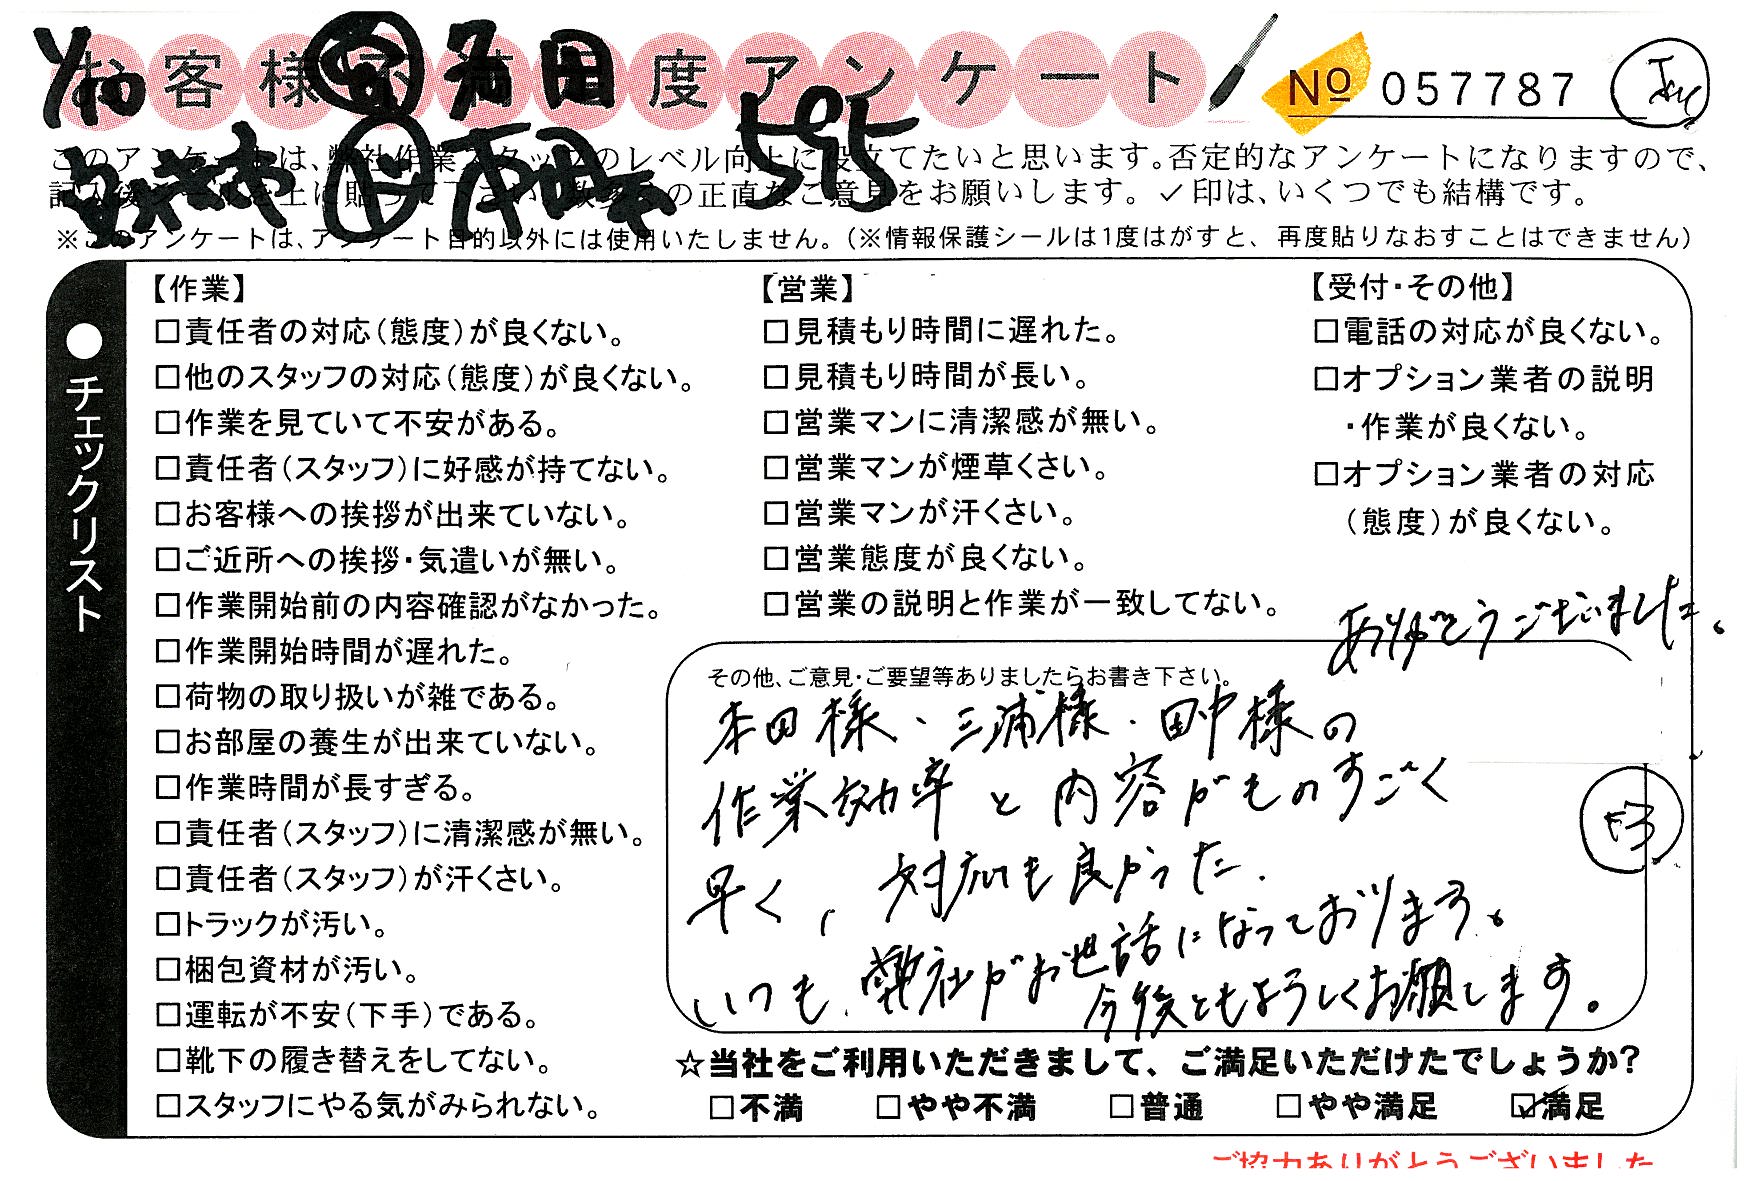 お客様不満足度アンケート
№ 057787
多田
595
本田
このアンケートは、弊社作業スタッフのレベル向上に役立てたいと思います。否定的なアンケートになりますので、
記入後シールを上に貼って下さい。数多くの正直なご意見をお願いします。✓印は、いくつでも結構です。
※このアンケートは、アンケート目的以外には使用いたしません。(※情報保護シールは1度はがすと、再度貼りなおすことはできません)
●チェックリスト
【作業】
□責任者の対応(態度)が良くない。
□他のスタッフの対応(態度)が良くない。
□作業を見ていて不安がある。
□責任者(スタッフ)に好感が持てない。
□お客様への挨拶が出来ていない。
□ご近所への挨拶・気遣いが無い。
□作業開始前の内容確認がなかった。
□作業開始時間が遅れた。
□荷物の取り扱いが雑である。
□お部屋の養生が出来ていない。
□作業時間が長すぎる。
□責任者(スタッフ)に清潔感が無い。
□責任者(スタッフ)が汗くさい。
□トラックが汚い。
□梱包資材が汚い。
□運転が不安(下手)である。
□靴下の履き替えをしてない。
□スタッフにやる気がみられない。
【営業】
□見積もり時間に遅れた。
□見積もり時間が長い。
□営業マンに清潔感が無い。
□営業マンが煙草くさい。
□営業マンが汗くさい。
□営業態度が良くない。
□営業の説明と作業が一致してない。
【受付・その他】
□電話の対応が良くない。
□オプション業者の説明
・作業が良くない。
□オプション業者の対応
(態度)が良くない。
ありがとうございました。
その他、ご意見・ご要望等ありましたらお書き下さい。
本田様・三浦様・田中様の
作業効率と内容がものすごく
早く、対応も良かった.
いつも、弊社がお世話になっております。
今後ともよろしくお願します。
☆当社をご利用いただきまして、ご満足いただけたでしょうか?
□不満 □やや不満 □普通 □やや満足 ☑満足
ご協力ありがとうございました